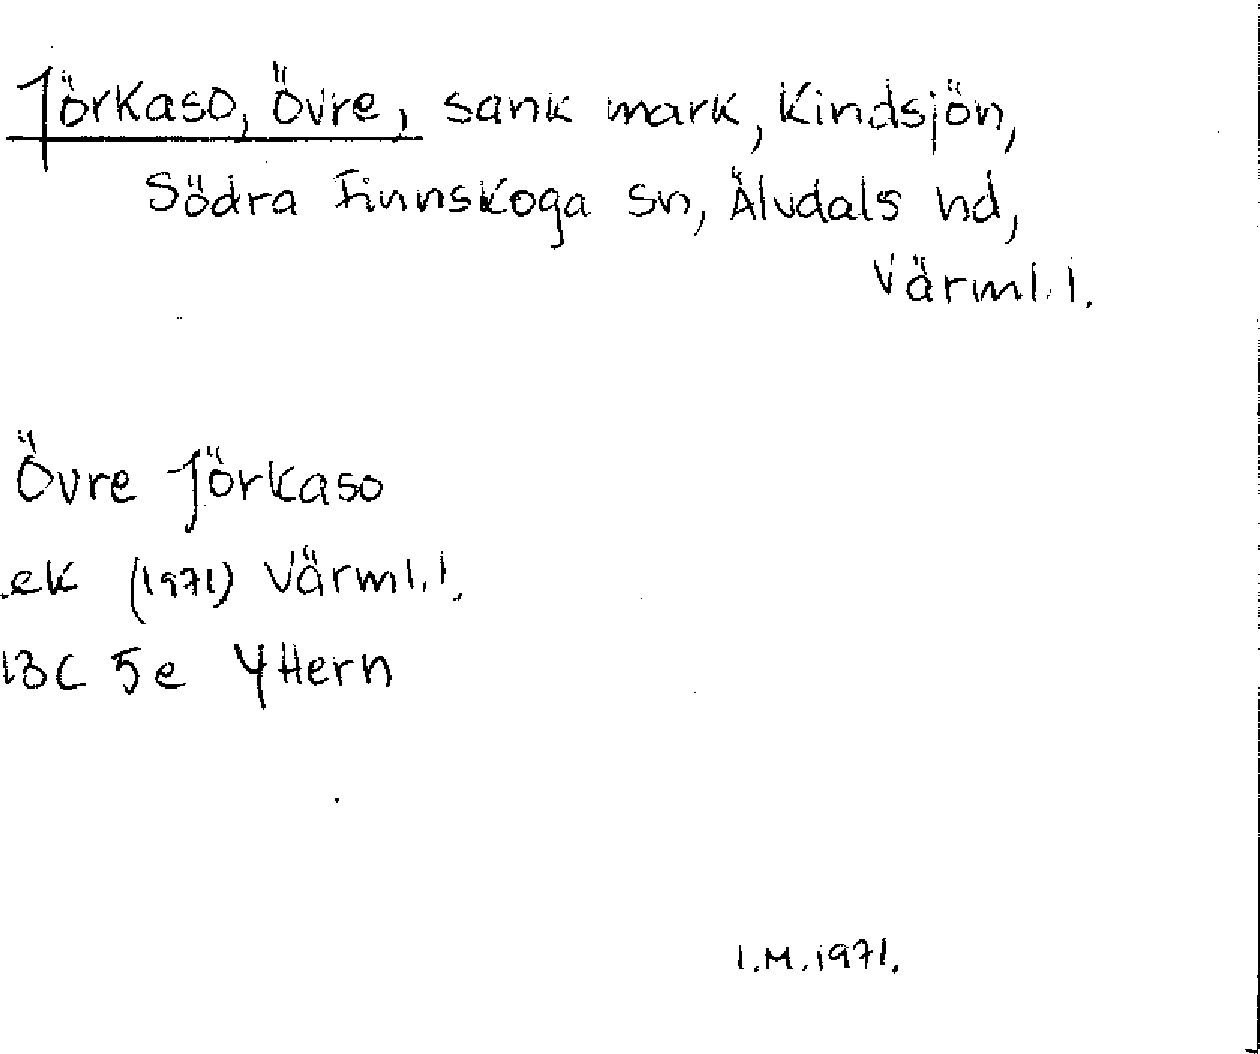 Jörkaso, Övre, sank mark, Kindsjön,
Södra Finnskoga sn, Älvdals hd,
Värml. l.
Övre Jörkaso
ek (1971) Värml. l.
13C 5e Y Hern
I.M. 1971.